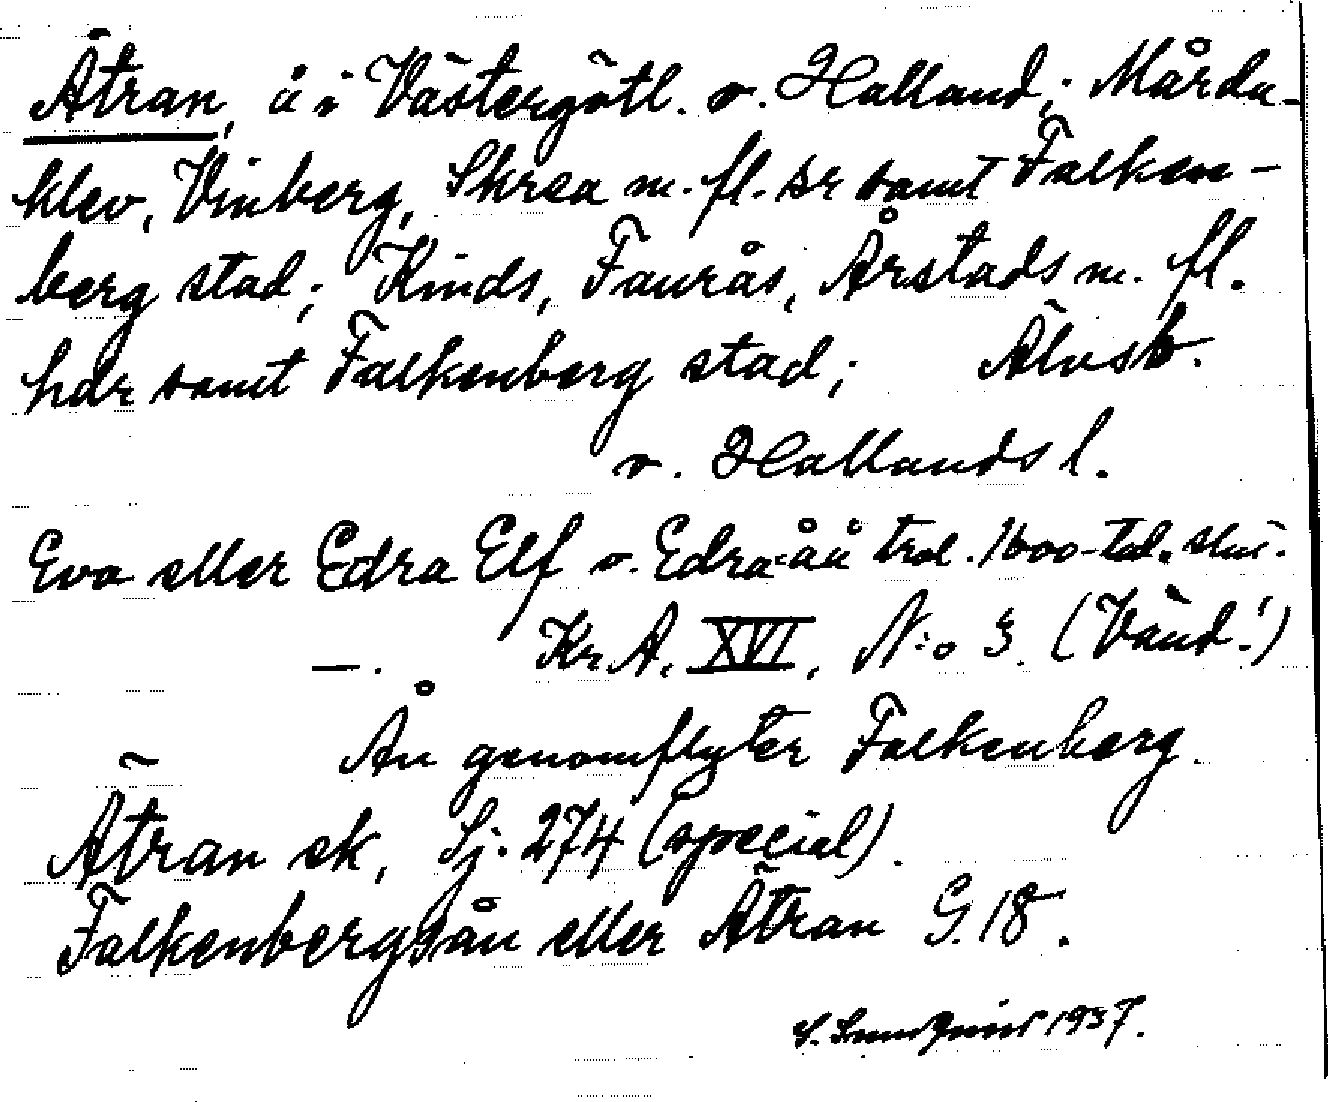 Ätran, å i Västergötl. o. Halland; Mårda-
klev, Vinberg, Skrea m. fl. sr samt Falken-
berg stad; Kinds, Faurås, Årstads m. fl.
hdr samt Falkenberg stad; Älvsb.
o. Hallands l.
Eva eller Edra Elf o. Edra-åå trol. 1600-tal. slut.
—. Kr. A. XVI, N:o 3. (Vänd!)
Ån genomflyter Falkenberg.
Ätran sk, Sj. 274 (special).
Falkenbergsån eller Ätran G. 18.
1937.